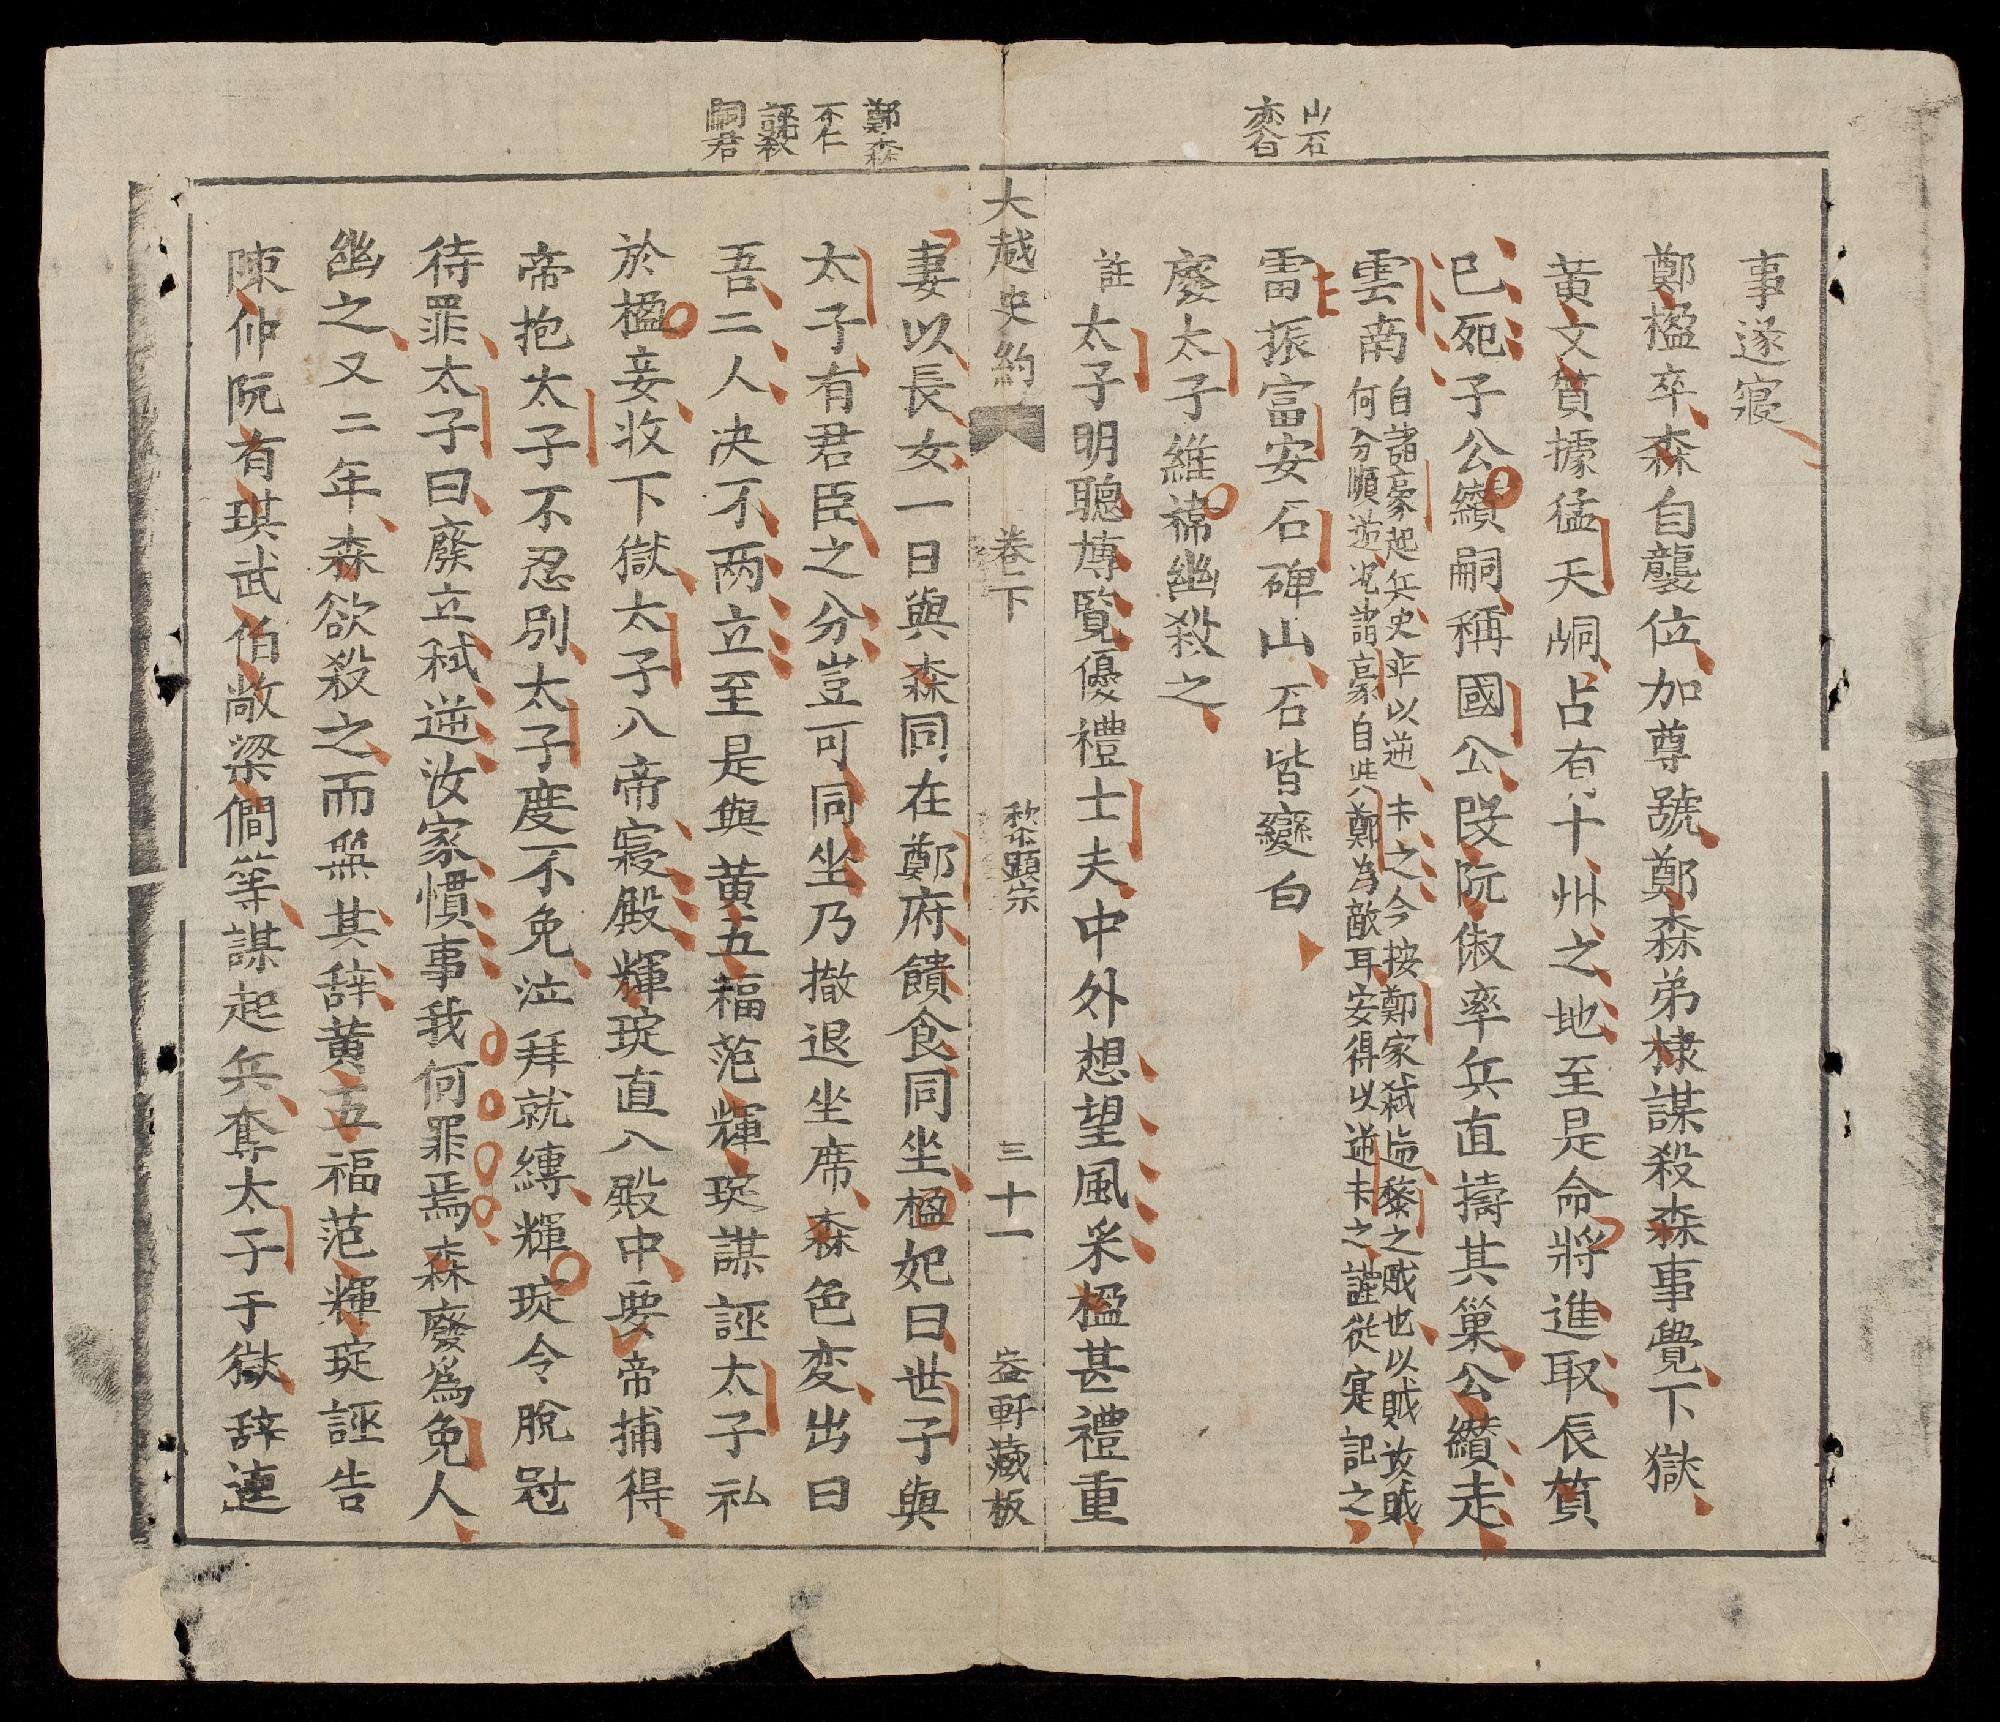 山石
変白
事遂寢
鄭楹卒森自襲位加尊號鄭森弟棣謀殺森事覺下獄
黃文質據猛天峒占有十州之地至是命將進取辰質
已死子公纘嗣稱國公段阮俶率兵直擣其巢公纘走
雲南
自諸豪起兵史率以逆未之今按鄭家弑逆黎之賊也以賊攻賊
何分順逆况諸豪自與鄭為敵耳安得以逆未之謹從寔記之
雷振富安石碑山石皆變白
廢太子維禕幽殺之
註太子明聰博覧優禮士夫中外想望風采楹甚禮重
大越史約
卷下
黎顯宗
三十一
益軒藏板
鄭森
不仁
誣殺
嗣君
妻以長女一日與森同在鄭府饋食同坐楹妃曰世子與
太子有君臣之分豈可同坐乃撤退坐席森色变出曰
吾二人决不两立至是與黄五福范輝琔謀誣太子私
於楹妾收下獄太子入帝寢殿輝琔直入殿中要帝捕得
帝抱太子不忍別太子度不免泣拜就縛輝琔令脫冠
待罪太子曰廢立弑逆汝家慣事我何罪焉森廢爲免人
幽之又二年森欲殺之而無其辞黄五福范輝琔誣告
陳仲阮有琪武伯敞梁僩等謀起兵奪太子于獄辞連